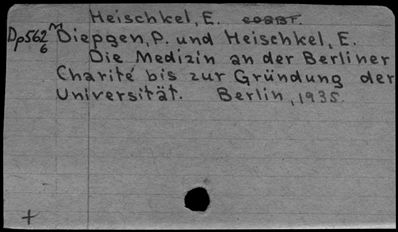 Heischkel, E.
Dp562 M Diepgen, P. und Heischkel, E.
6 Die Medizin an der Berliner
Charité bis zur Gründung der
Universität. Berlin, 1935.
+